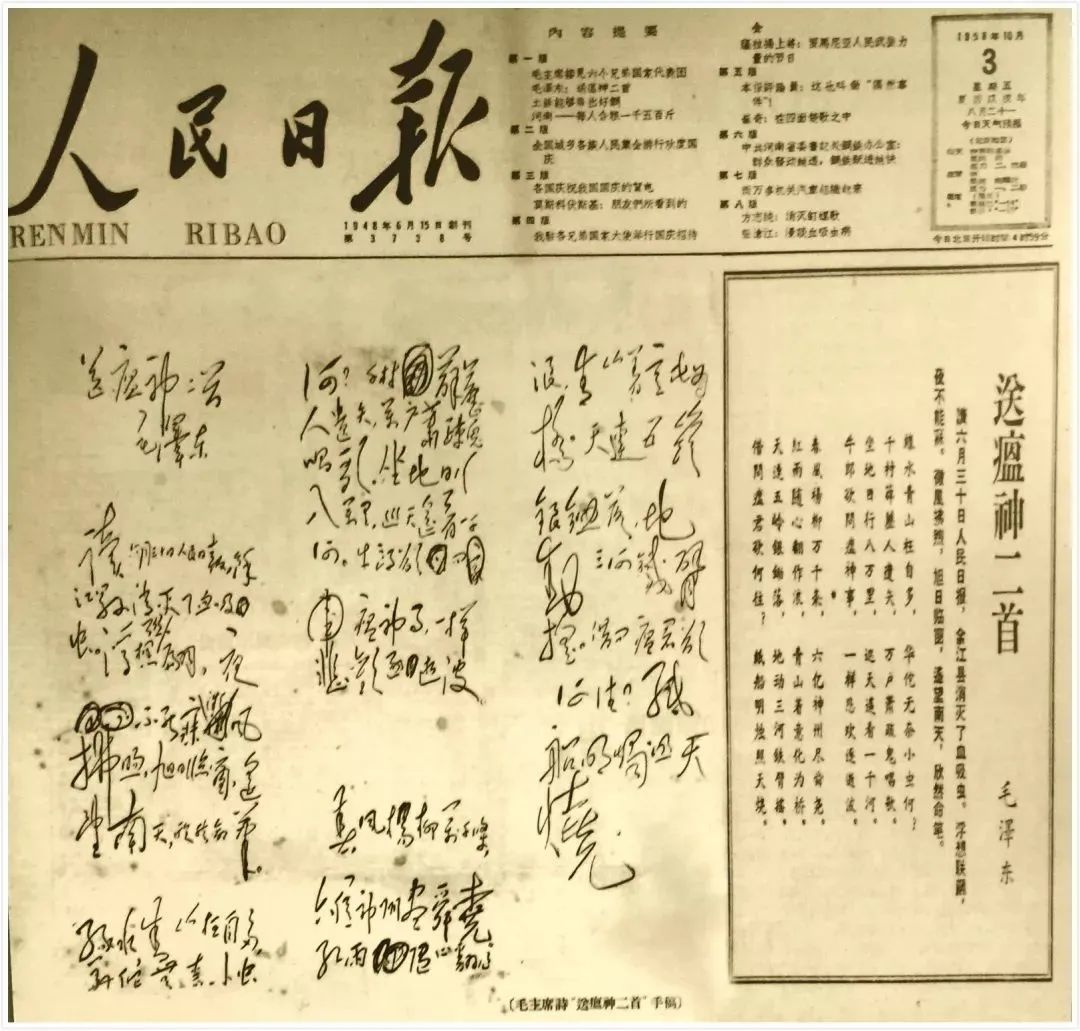 人民日報
RENMIN RIBAO
1948年6月15日創刊
第3738号
內容提要
第一版
毛主席接見六个兄弟国家代表团
毛泽东：送瘟神二首
土鉄能够炼出好鋼
河南——每人合粮一千五百斤
第二版
全国城乡各族人民集会游行欢度国
庆
第三版
各国庆祝我国国庆的賀电
莫斯科伏斯基：朋友們所看到的
第四版
我駐各兄弟国家大使举行国庆招待
会
薩拉揚上將：罗馬尼亚人民武装力
量的节日
第五版
本报評論員：这也叫做“偶然事
件”！
崔奇：在四面楚歌之中
第六版
中共河南省委書記处鋼鉄办公室：
第七版
两万多机关汽車組織起来
第八版
方志純：消灭釘螺歌
漫談血吸虫病
1958年10月
3
星期五
夏历戊戌年
八月二十一
今日天气預报
送瘟神二首
毛泽东
讀六月三十日人民日报，余江县消灭了血吸虫。浮想联翩，
夜不能寐。微風拂煦，旭日临窗，遙望南天，欣然命笔。
綠水青山枉自多，华佗无奈小虫何？
千村薜荔人遺矢，万户蕭疏鬼唱歌。
坐地日行八万里，巡天遙看一千河。
牛郎欲問瘟神事，一样悲欢逐逝波。
春風楊柳万千条，六亿神州尽舜堯。
紅雨随心翻作浪，青山着意化为桥。
天連五岭銀鋤落，地动三河鉄臂搖。
借問瘟君欲何往？紙船明烛照天燒。
送瘟神二首
毛泽东
讀六月三十日人民日报，余
江县消灭了血吸
虫。浮想联翩，夜
不能寐。微風
拂煦，旭日临窗，遙
望南天，欣然命笔。
綠水青山枉自多，
华佗无奈小虫
何？千村薜荔
人遺矢，万户蕭疏鬼
唱歌。坐地日行
八万里，巡天遙看一千
河。牛郎欲
問瘟神事，一样
悲欢逐逝波
春風楊柳万千条，
六亿神州尽舜堯
紅雨随心翻作
浪，青山着意化为
桥。天連五岭
銀鋤落，地
动三河鉄臂
搖。借問瘟君欲
何往？紙
船明烛照天
燒
（毛主席詩“送瘟神二首”手稿）